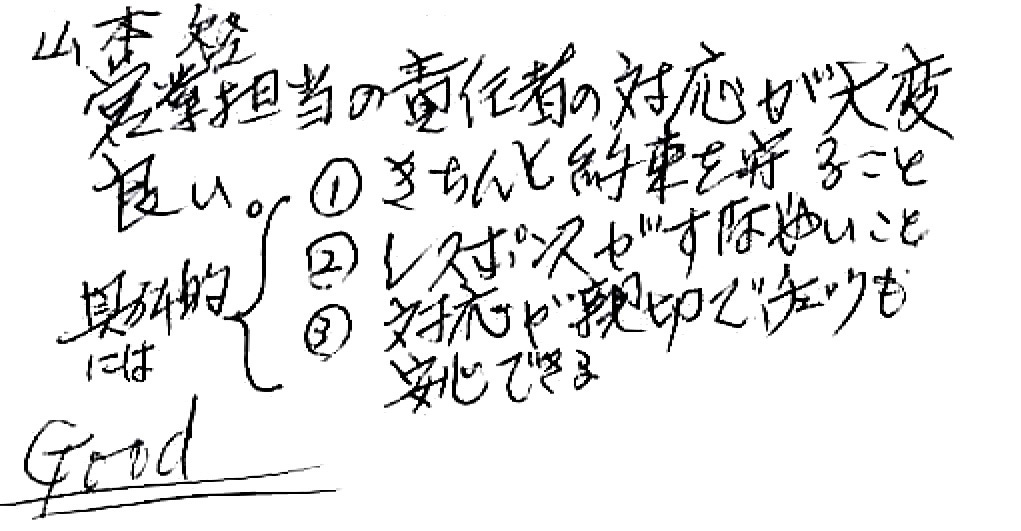 山本
営業担当の責任者の対応が大変
良い。
具体的
には
① きちんと約束を守ること
② レスポンスがすばやいこと
③ 対応が親切で
安心できる
Good